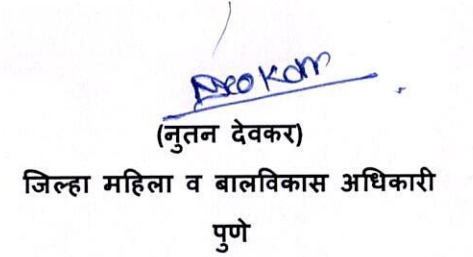 (नुतन देवकर)
जिल्हा महिला व बालविकास अधिकारी
पुणे